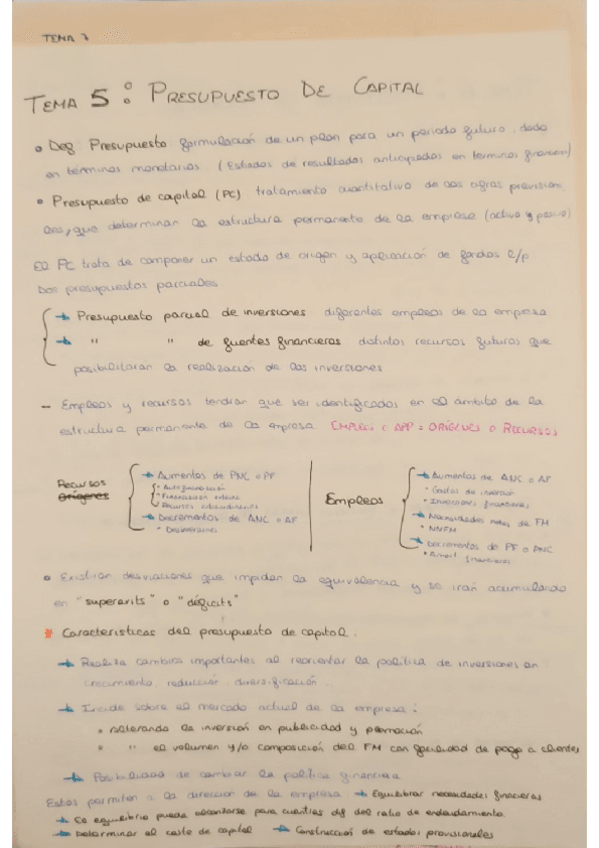 TEMA 7
TEMA 5: PRESUPUESTO DE CAPITAL
Def Presupuesto formulación de un plan para un periodo futuro, dado
en términos monetarios (Estados de resultados anticipados en terminos financieros)
• Presupuesto de capital (PC) tratamiento cuantitativo de las cifras prevision
les, que determinan la estructura permanente de la empresa (activo y pasivo)
El PC trata de componer un estado de origen y aplicación de fondos l/p
Dos presupuestos parciales
→ Presupuesto parcial de inversiones diferentes empleos de la empresa
→ " " de fuentes financieras distintos recursos futuros que
posibilitaran la realización de las inversiones
- Empleos y recursos tendrían que ser identificados en el ámbito de la
estructura permanente de la empresa EMPLEOS o APP = ORÍGENES O RECURSOS
Recursos
Orígenes
→ Aumentos de PNC o PF
• Autofinanciación
• Financiación externa
• Recursos extraordinarios
→ Decrementos de ANC o AF
• Desinversiones
Empleos
→ Aumentos de ANC o AF
• Gastos de inversión
• Inversiones financieras
→ Necesidades netas de FM
• NNFM
→ Decrementos de PF o PNC
• Amort financieras
• Existirán desviaciones que impidan la equivalencia y se irán acumulando
en "superavits" o "déficits"
* Características del presupuesto de capital.
→ Realiza cambios importantes al reorientar la política de inversiones en
crecimiento, reducción, diversificación.
→ Incide sobre el mercado actual de la empresa:
• Alterando la inversión en publicidad y promoción
• " el volumen y/o composición del FM con facilidad de pago a clientes
→ Posibilidad de cambiar la política financiera
Estas permiten a la dirección de la empresa → Equilibrar necesidades financieras
→ Ese equilibrio puede alcanzarse para cuantías dif del ratio de endeudamiento.
→ Determinar el coste de capital → Construcción de estados previsionales